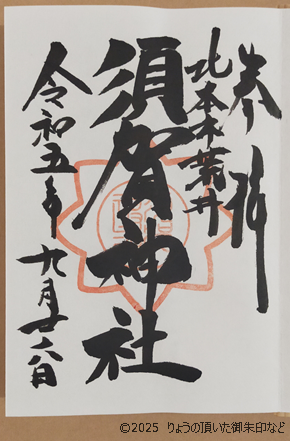 奉拝
北本市荒井
須賀神社
令和五年
九月廿八日
©2025 りょうの頂いた御朱印など